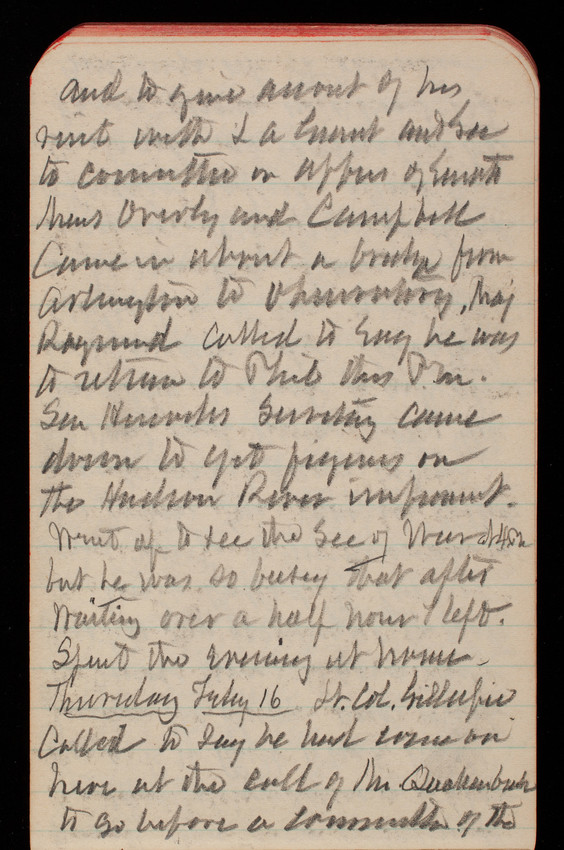 and to give account of his
visit with L A Grant and Gen
to committee on affairs of Senate
Mess Overly and Campbell
Came in about a bridge from
Arlington to Observatory, Maj
Raymond called to say he was
to return to Phil this P.m.
Sen Secretary came
down to get figures on
the Hudson River improvmt.
Went up to see the Sec of War at 4
but he was so busy that after
waiting over a half hour I left.
Spent the evening at home.
Thursday Feby 16 Lt. Col. Gillespie
Called to say he had come on
here at the call of Mr Quackenbush
to go before a committee of the